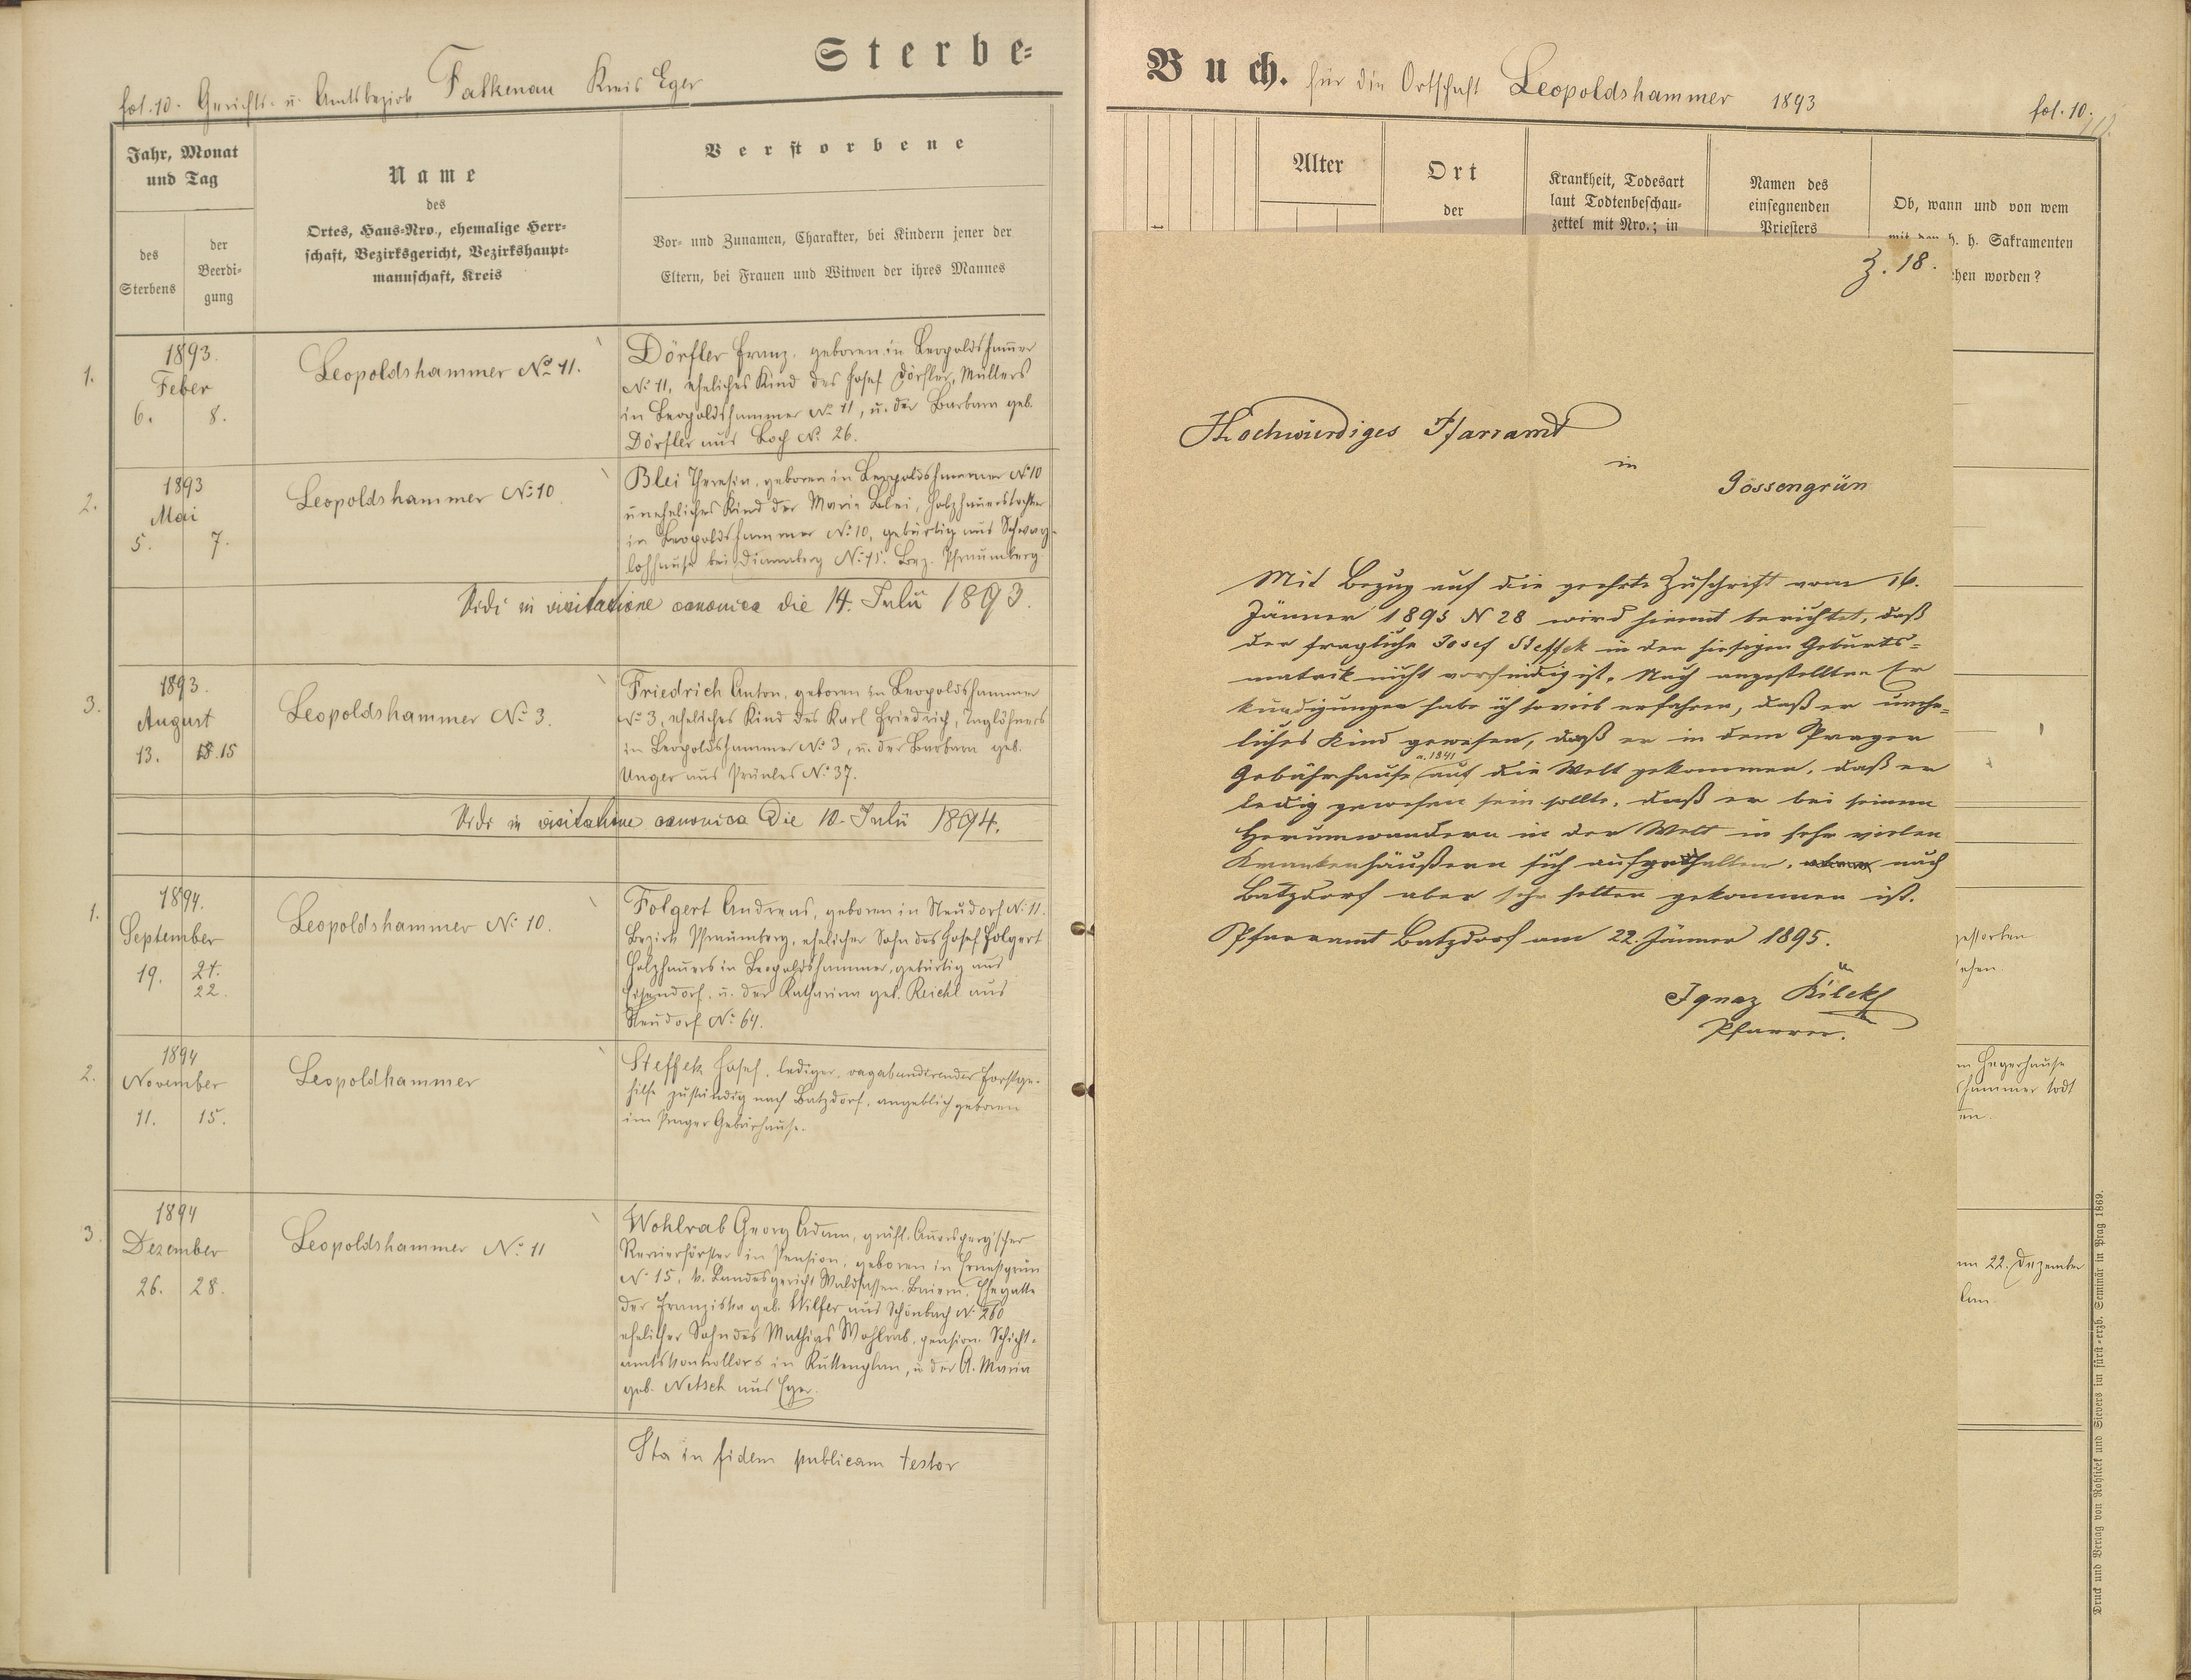 Sterbe-
fol. 10. Gerichts- u. Amtsbezirk Falkenau Kreis Eger
Jahr, Monat
und Tag
des
Sterbens
der
Beerdi-
gung
Name
des
Ortes, Haus-Nro., ehemalige Herr-
schaft, Bezirksgericht, Bezirkshaupt-
mannschaft, Kreis
Verstorbene
Vor- und Zunamen, Charakter, bei Kindern jener der
Eltern, bei Frauen und Witwen der ihres Mannes
1.
1893.
Feber
6. 8.
Leopoldshammer No 11.
Dörfler Franz. geboren in Leopoldshammer
No 11, eheliches Kind des Josef Dörfler, Müllers
in Leopoldshammer No 11, u. der Barbara geb.
Dörfler aus Loch No 26.
2.
1893
Mai
5. 7.
Leopoldshammer No 10
Blei Theresia, geboren in Leopoldshammer No 10
uneheliches Kind der Marie Blei, Holzhauerstochter
in Leopoldshammer No 10, gebürtig aus
bei No 15. Bez. Pfraumberg
Vidi in visitatione canonica die 14. Julii 1893.
3.
1893.
August
13. 15
Leopoldshammer No 3.
Friedrich Anton, geboren in Leopoldshammer
No 3, eheliches Kind des Karl Friedrich, Taglöhners
in Leopoldshammer No 3, u. der Barbara geb.
Unger aus Prünles No 37.
Vidi in visitatione canonica die 10. Julii 1894.
1.
1894.
September
19. 21.
22.
Leopoldshammer No 10.
Folgert Andreas, geboren in Neudorf No 11.
Bezirk Pfraumberg, ehelicher Sohn des Josef Folgert
Holzhauers in Leopoldshammer, gebürtig aus
Eisendorf, u. der Katharina geb. Reichl aus
Neudorf No 64.
2.
1894
November
11. 15.
Leopoldhammer
Steffek Josef, lediger, vagabundirender Forstge-
hilfe zuständig nach Batzdorf, angeblich geboren
im Prager Gebärhause.
3.
1894
Dezember
26. 28.
Leopoldshammer No 11
Wohlrab Georg Adam, gräfl. Auersperg'scher
Revierförster in Pension, geboren in Ernestgrün
No 15, k. Landesgericht Waldsassen Baiern, Ehegatte
der Franziska geb. Hilfer aus Schönbach No 260
ehelicher Sohn des Mathias Wohlrab, pension. Schicht-
amtskontrollors in Kuttenplan, u. der A. Maria
geb. Netsch aus Eger.
Ita in fidem publicam testor
Buch. für die Ortschaft Leopoldshammer 1893 fol. 10.
Alter
Ort
der
Krankheit, Todesart
laut Todtenbeschau-
zettel mit Nro.; in
Namen des
einsegnenden
Priesters
Ob, wann und von wem
mit den h. h. Sakramenten
hen worden?
Z. 18.
Hochwürdiges Pfarramt
in
Gossengrün
Mit Bezug auf die geehrte Zuschrift vom 16.
Jänner 1895 N 28 wird hiemit berichtet, daß
der fragliche Josef Steffek in der hiesigen Geburts-
matrik nicht vorfindig ist. Nach angestellten Er
kundigungen habe ich soviel erfahren, daß er unehe-
liches Kind gewesen, daß er in dem Prager
Gebährhause a. 1841 auf die Welt gekommen, daß er
ledig gewesen sein sollte, daß er bei seinem
Herumwandern in der Welt in sehr vielen
Krankenhäußern sich aufgehalten, nach
Batzdorf aber sehr selten gekommen ist.
Pfarramt Batzdorf am 22. Jänner 1895.
Ignaz
Pfarrer.
gestorben
sehen
im Hegerhause
hammer todt
am 22. Dezember
lan
Druck und Verlag von Rohliček und Sievers im fürst-erzb. Seminär in Prag 1869.